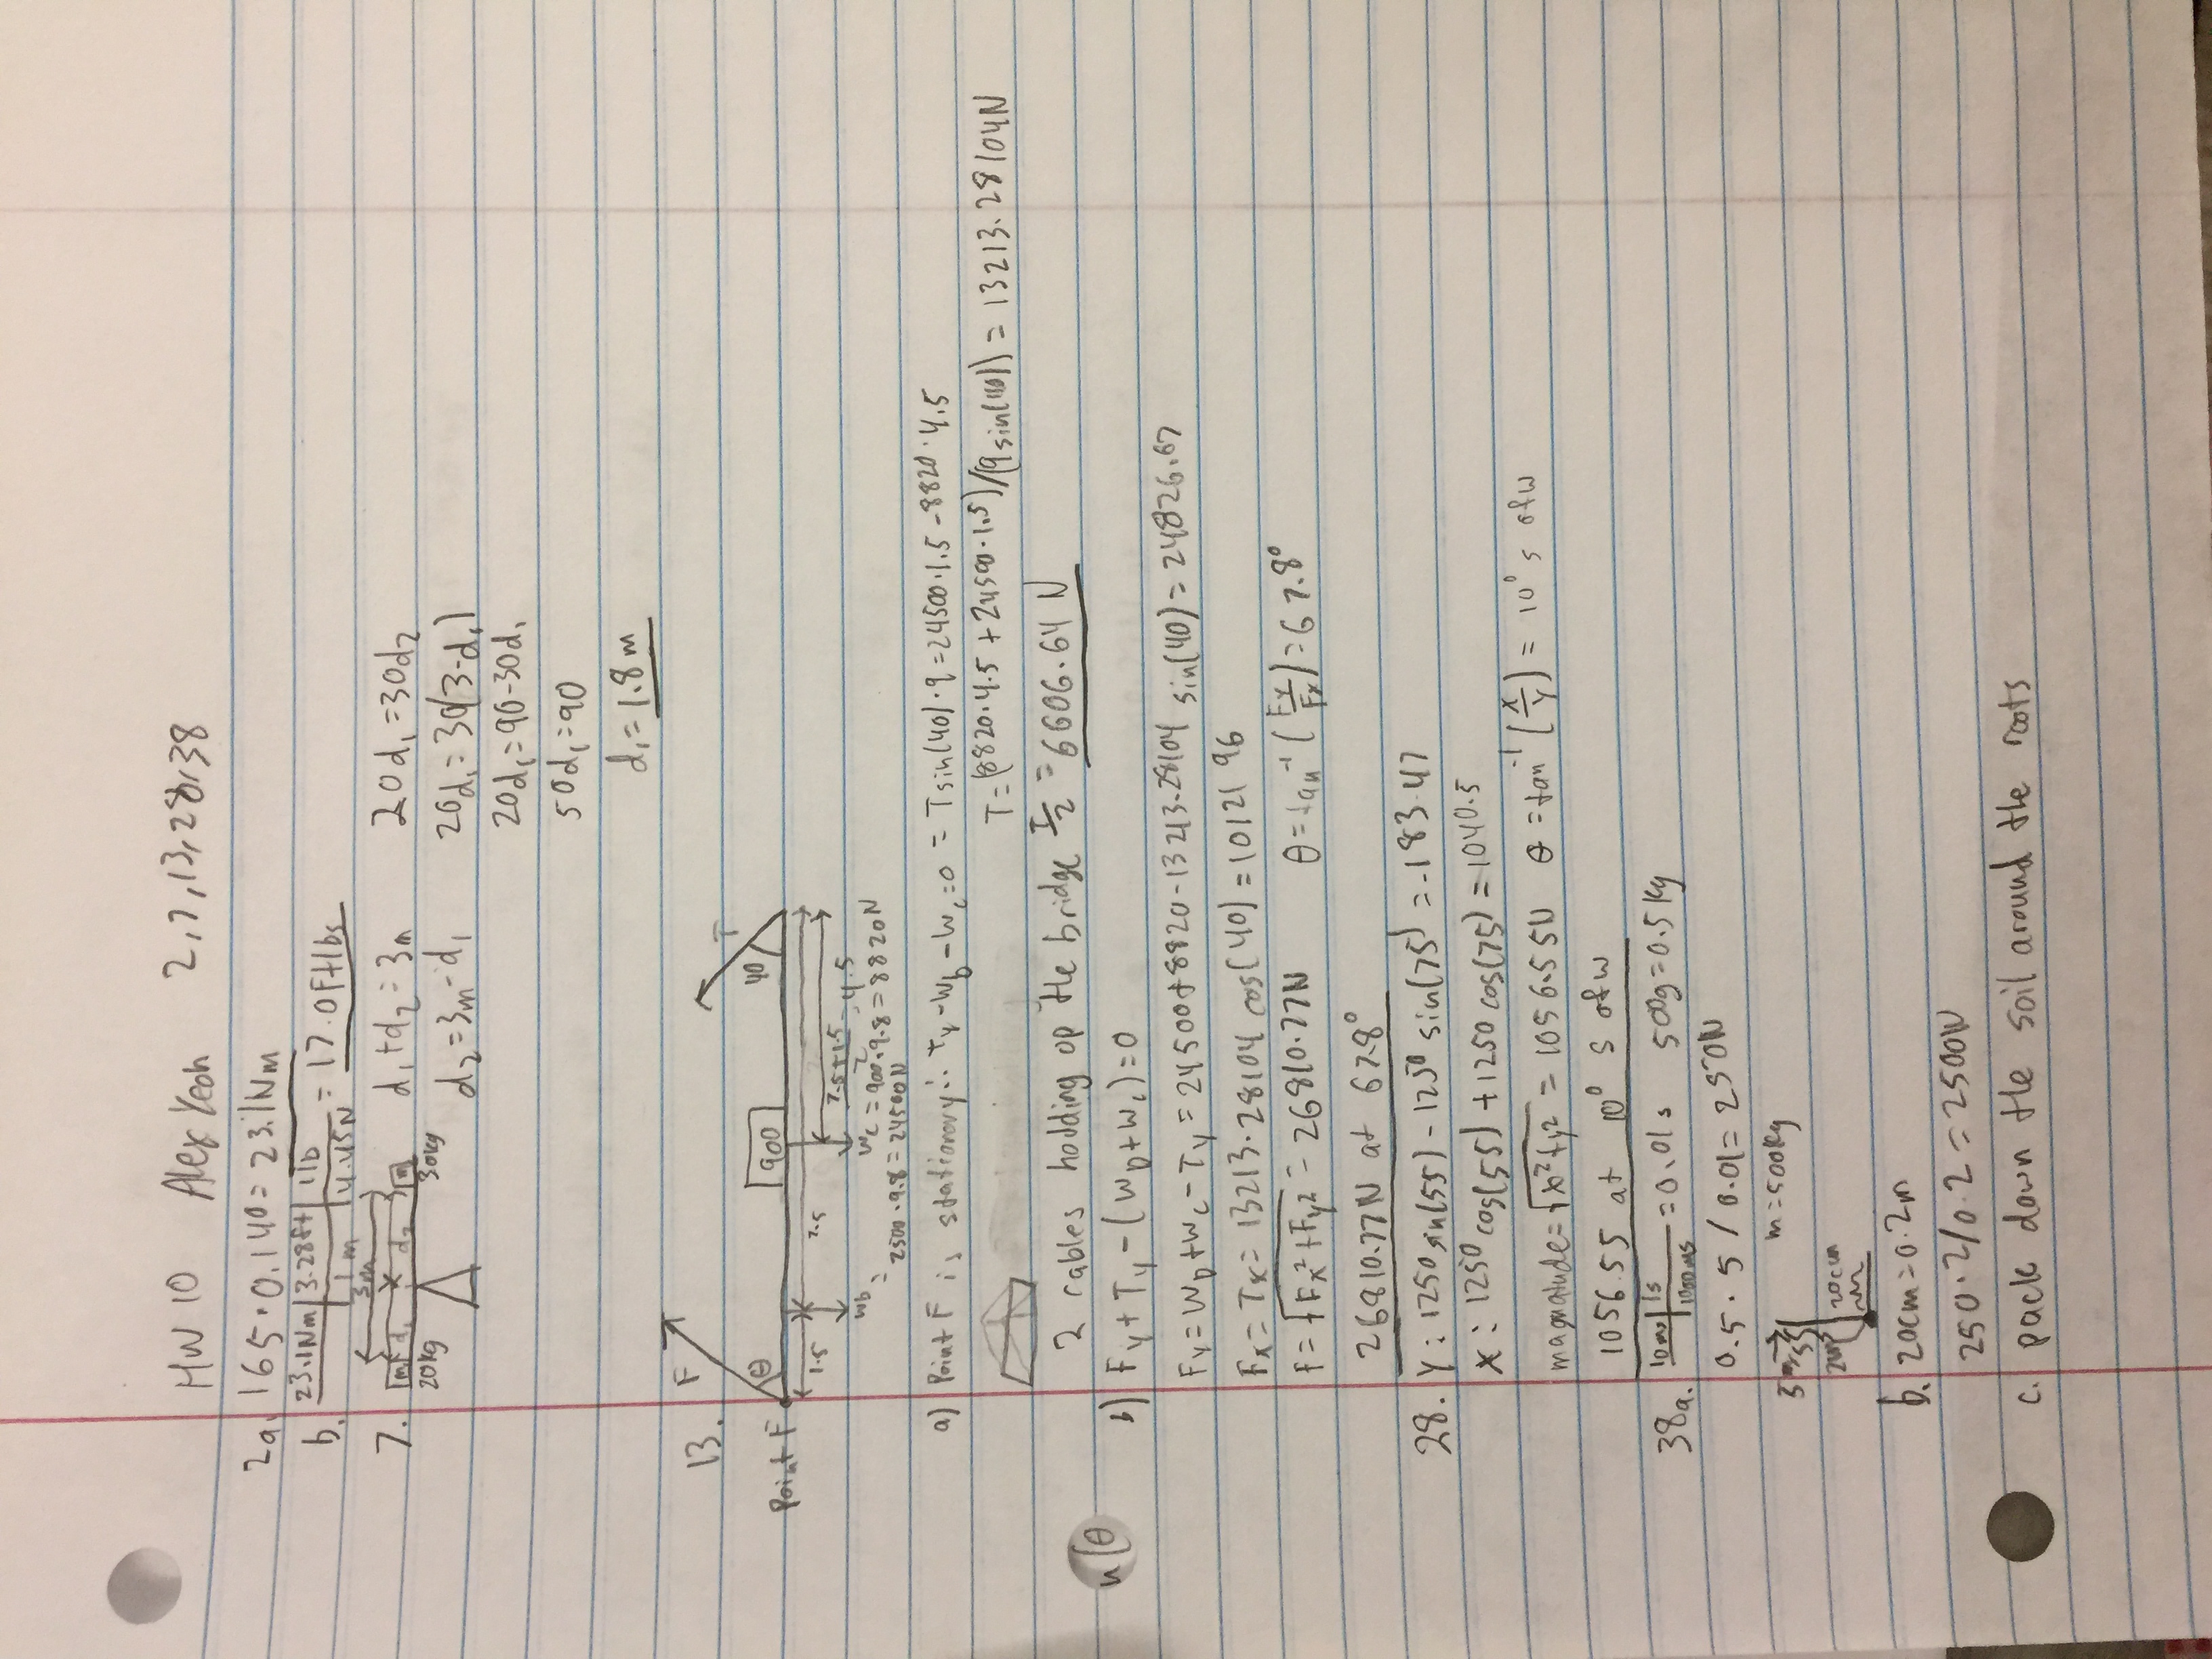 HW 10 Alex Yeoh 2,7,13,28,38
2a. 165·0.140=23.1Nm
b. 23.1Nm | 3.28ft | 1lb = 17.0Ftlbs
1m | 4.45N
3m
7. m d₁ d₂ m d₁+d₂=3m 20d₁=30d₂
20kg 30kg d₂=3m-d₁ 20d₁=30(3-d₁)
20d₁=90-30d₁
50d₁=90
d₁=1.8m
13. F T
θ 900 40
Point F
1.5 7.5
7.5+1.5/2=4.5
Wb Wc=900·9.8=8820N
=2500·9.8=24500N
a) Point F is stationary∴ Ty-Wb-Wc=0 = Tsin(40)·9=24500·1.5-8820·4.5
T=(8820·4.5+24500·1.5)/(9sin(40))=13213.28104N
2 cables holding up the bridge T/2=6606.64 N
n(θ
b) Fy+Ty-(Wb+Wc)=0
Fy=Wb+Wc-Ty=24500+8820-13213.28104 sin(40)=24826.67
Fx=Tx=13213.28104 cos(40)=10121 96
F=√Fx²+Fy²=26810.77N θ=tan⁻¹(Fy/Fx)=67.8°
26810.77N at 67.8°
28. Y: 1250sin(55)-1250 sin(75)=-183.47
X: 1250cos(55)+1250 cos(75)=1040.5
magnatude=√x²+y²=1056.55N θ=tan⁻¹(x/y)=10° s of w
1056.55 at 10° s of w
38a. 10ms | 1s =0.01s 500g=0.5kg
1000ms
0.5·5/0.01=250N
5m/s m=500kg
2m 20cm
b. 20cm=0.2m
250·2/0.2=2500N
c. pack down the soil around the roots